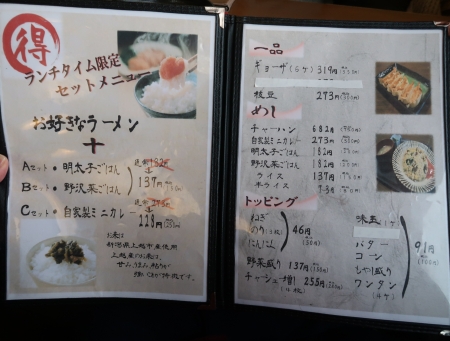 得
ランチタイム限定
セットメニュー
お好きなラーメン
＋
Aセット・明太子ごはん
Bセット・野沢菜ごはん
137円
Cセット・自家製ミニカレー
228円
お米は
新潟県上越市産使用
上越産のお米は、
一品
ギョーザ(6ヶ) 319円
枝豆 273円
めし
チャーハン 682円
自家製ミニカレー 273円
明太子ごはん 182円
野沢菜ごはん 182円
ライス 137円
半ライス
トッピング
ねぎ
のり
にんにく
46円
(50円)
野菜盛り 137円
チャーシュー増し 255円
味玉
バター
コーン
もやし盛り
ワンタン
(4ヶ)
91円
(100円)